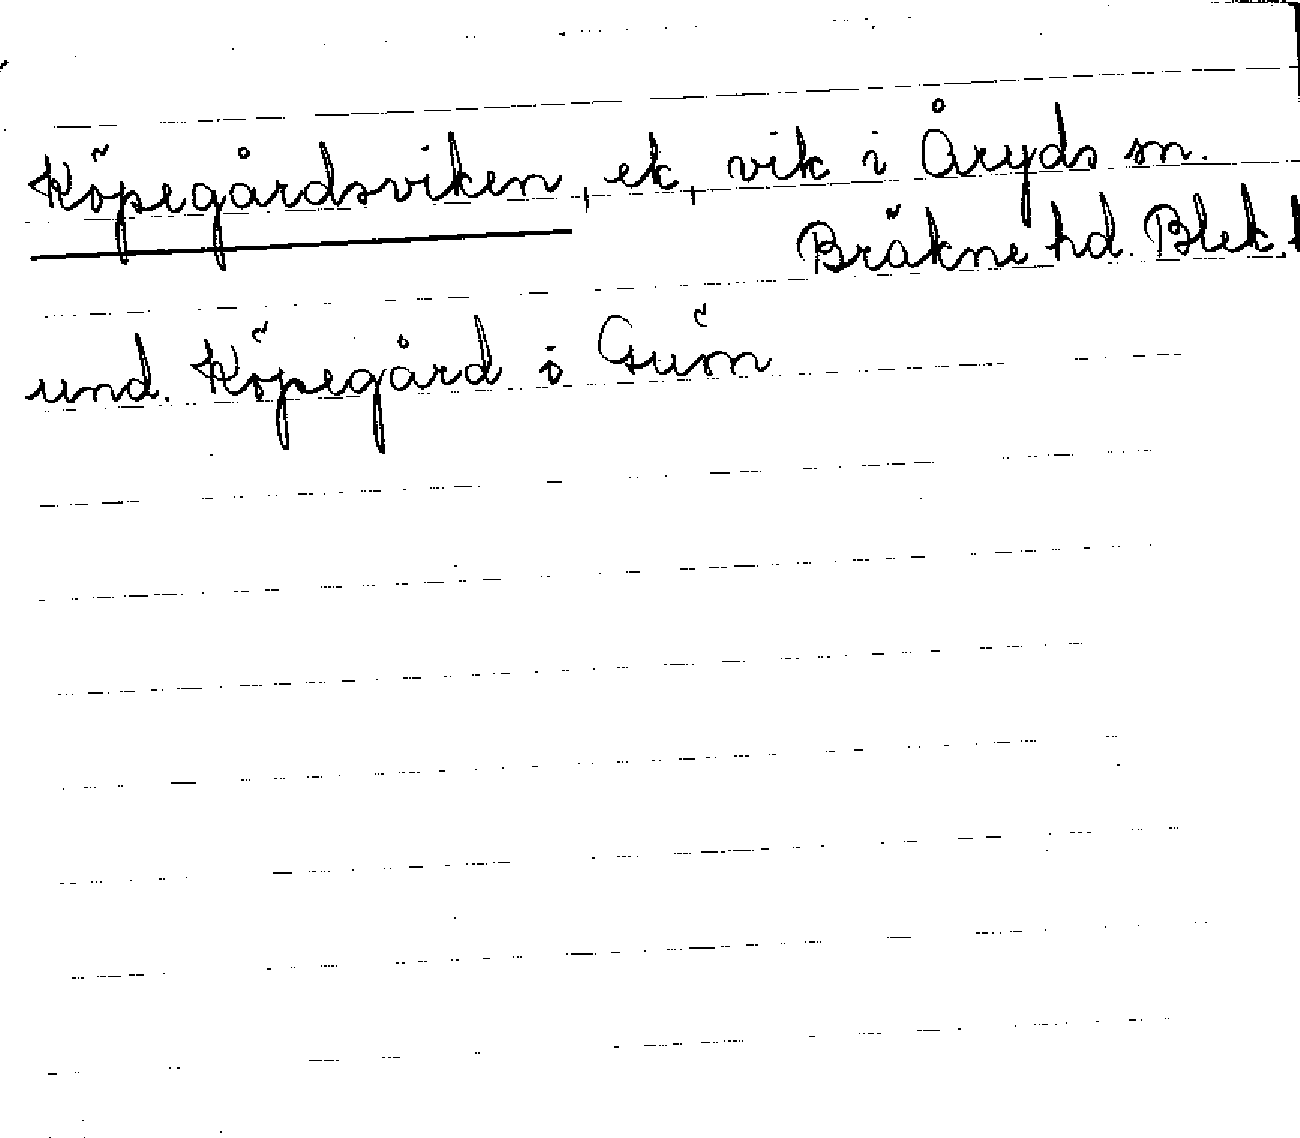 Köpegårdsviken, ek, vik i Åryds sn.
Bräkne hd. Blek. l
und. Köpegård i Guön